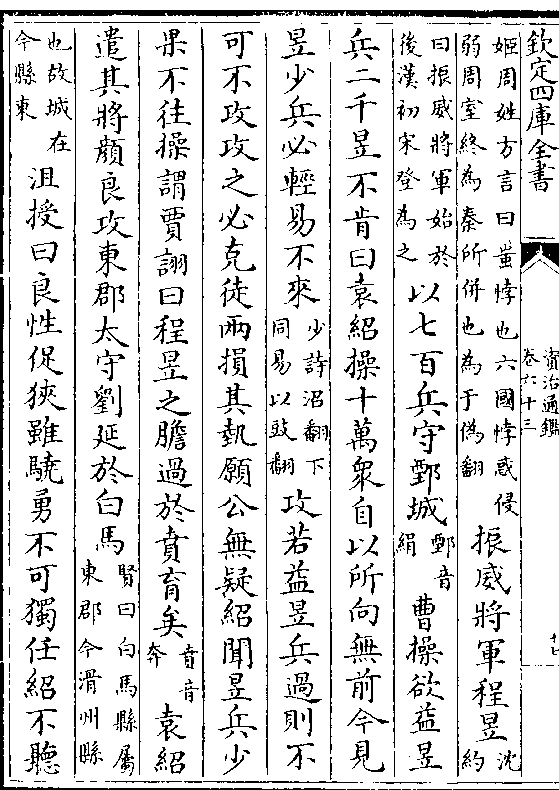 欽定四庫全書
資治通鑑
卷六十三
姬周姓方言曰蚩悖也六國悖惑侵
弱周室終為秦所併也為于偽翻
振威將軍程昱
沈約
曰振威將軍始於
後漢初宋登為之
以七百兵守鄄城
鄄音
絹
曹操欲益昱
兵二千昱不肯曰袁紹操十萬衆自以所向無前今見
昱少兵必輕易不來
少詩沼翻下
同易以豉翻
攻若益昱兵過則不
可不攻攻之必克徒兩損其埶願公無疑紹聞昱兵少
果不往操謂賈詡曰程昱之膽過於賁育矣
賁音
奔
袁紹
遣其將顔良攻東郡太守劉延於白馬
賢曰白馬縣屬
東郡今滑州縣
也故城在
今縣東
沮授曰良性促狹雖驍勇不可獨任紹不聽